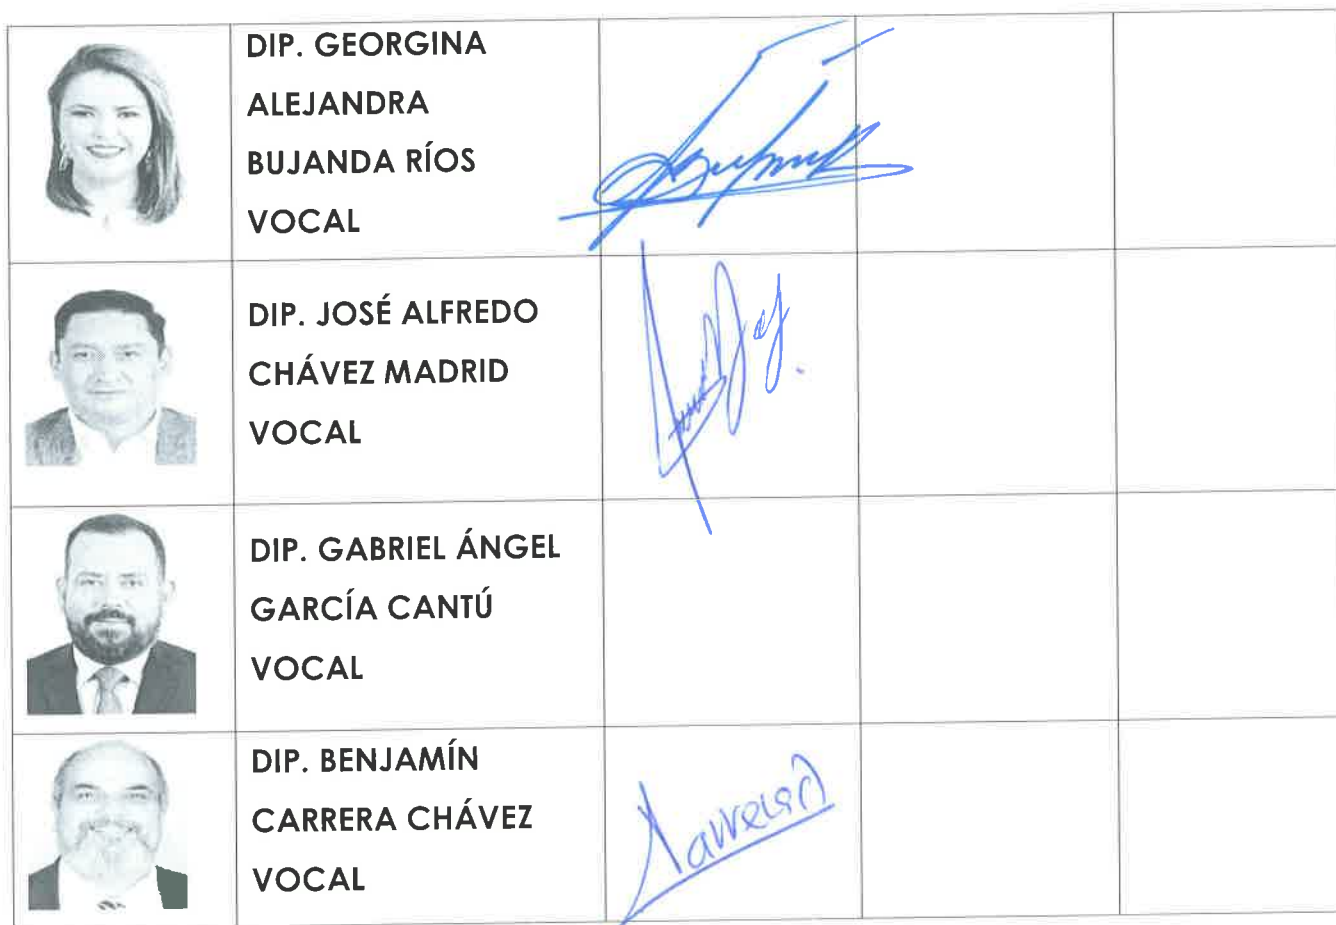 DIP. GEORGINA
ALEJANDRA
BUJANDA RÍOS
VOCAL
DIP. JOSÉ ALFREDO
CHÁVEZ MADRID
VOCAL
DIP. GABRIEL ÁNGEL
GARCÍA CANTÚ
VOCAL
DIP. BENJAMÍN
CARRERA CHÁVEZ
VOCAL